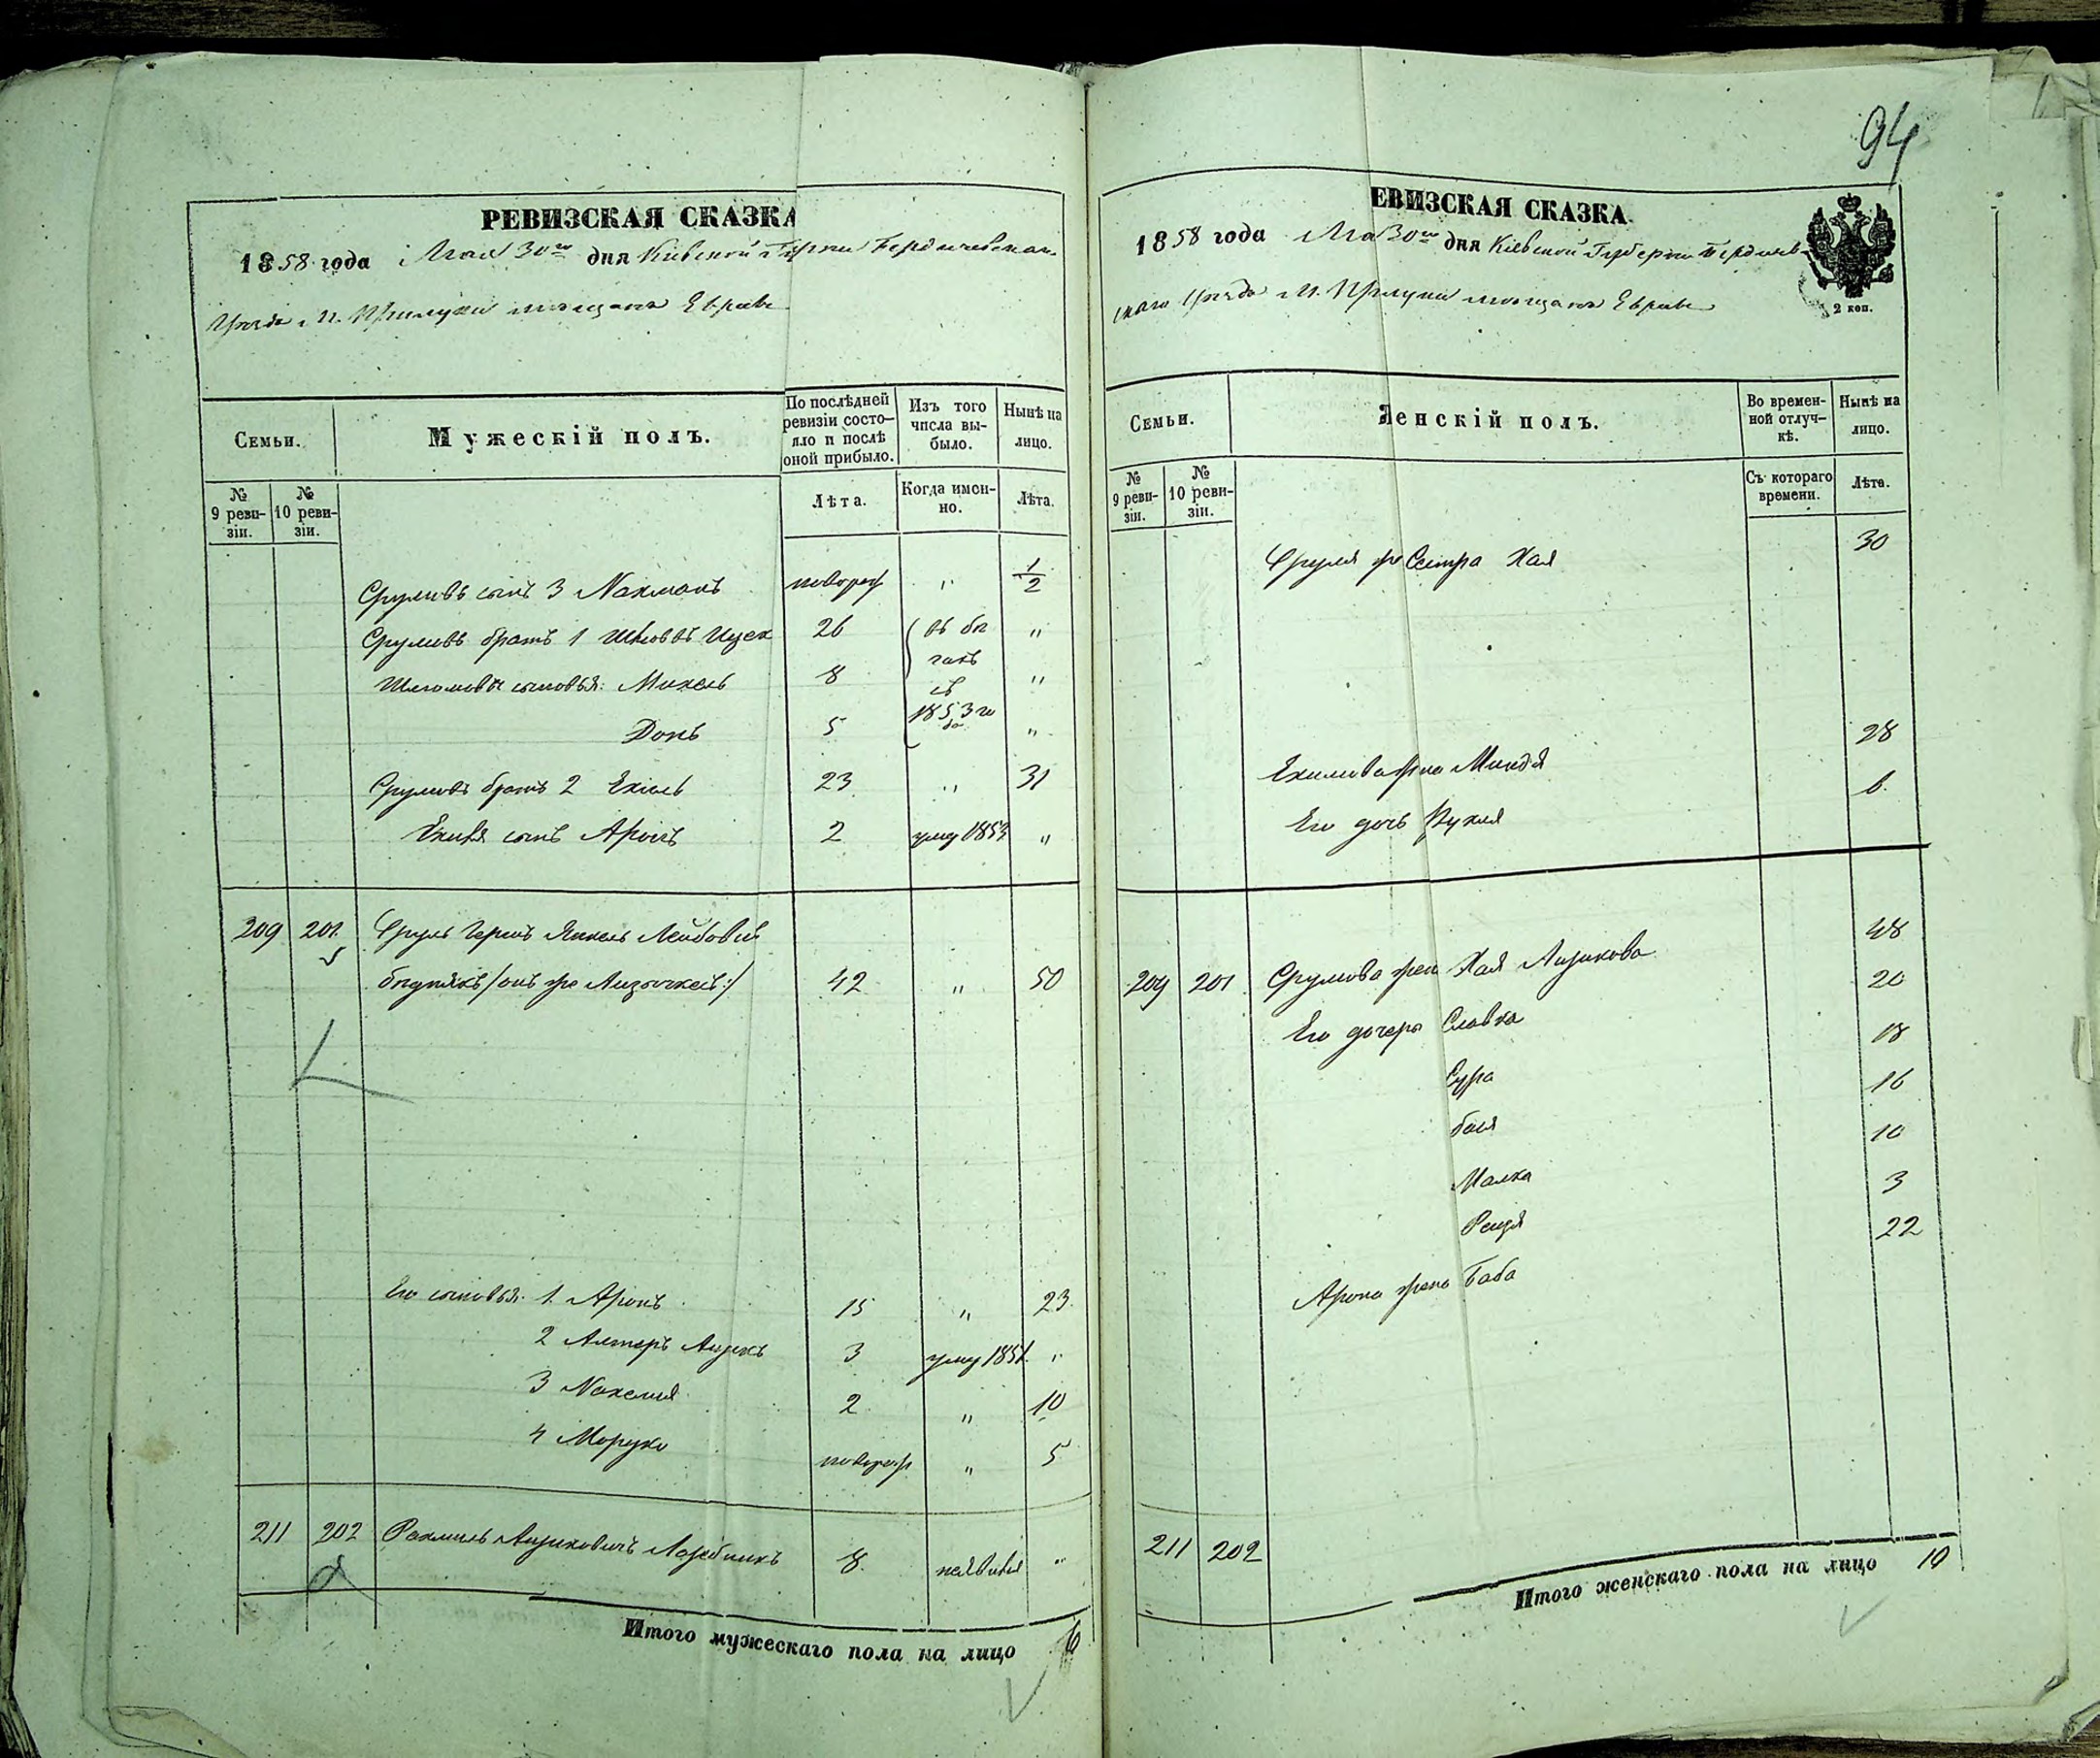 94
РЕВИЗСКАЯ СКАЗКА
1858 года Мая 30го дня Кіевской Губерніи Бердичевскаго
Уѣзда м. Прилуки мѣщанъ Евреевъ
Семьи.
Мужескій полъ.
По послѣдней ревизіи состо-
яло и послѣ оной прибыло.
Изъ того числа вы-
было.
Нынѣ на лицо.
№ 9 реви-
зіи.
№ 10 реви-
зіи.
Лѣта.
Когда имен-
но.
Лѣта.
Срулевъ сынъ 3 Нахманъ новорож " 1/2
Срулевъ братъ 1 Ицек 26 въ бѣ "
Шлiомовы сыновья: Михель 8 гахъ съ "
Донъ 5 1853 го да "
Срулевъ братъ 2 Ехіель 23 " 31
Ехиля сынъ Аронъ 2 умер 1853 "
209 201 Сруль Гершъ Янкель Лейбовичъ
42 " 50
Его сыновья: 1. Аронъ 15 " 23
2 Алтеръ Айзикъ 3 умер 1851 "
3 2 " 10
4 Мордко новорож " 5
211 202 Рахмиль Айзиковичъ 8 неявился "
Итого мужескаго пола на лицо 6
ЕВИЗСКАЯ СКАЗКА
1858 года Мая 30го дня Кіевской Губерніи Бердичев-
скаго Уѣзда м. Прилуки мѣщанъ Евреевъ
2 коп.
Семьи.
Женскій полъ.
Во времен-
ной отлуч-
кѣ.
Нынѣ на лицо.
№ 9 реви-
зіи.
№ 10 реви-
зіи.
Съ котораго времени.
Лѣта.
Сруля же Сестра Хая 30
Ехилева жена Миндя 28
Его дочь Рухля 6
209 201 Срулева жена Хая Айзикова 48
Его дочери Славка 20
Сура 18
бася 16
Малка 10
Рейзя 3
Арона жена Баба 22
211 202
Итого женскаго пола на лицо 10